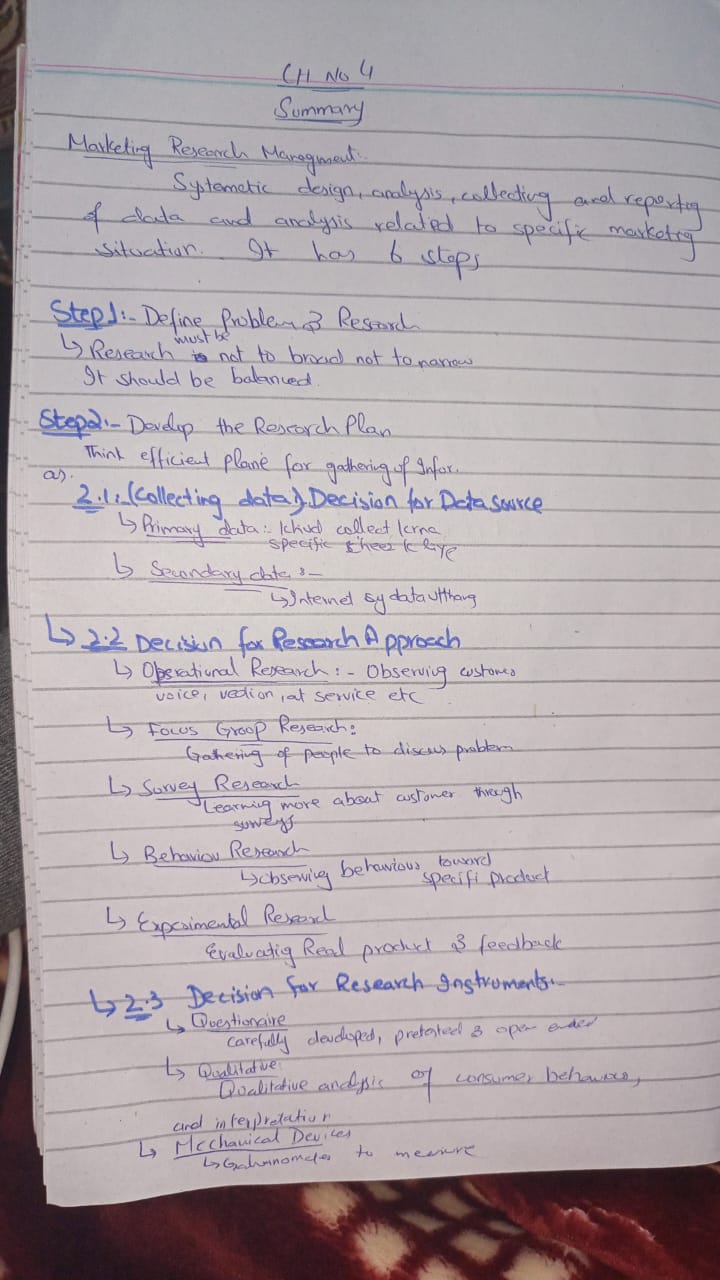 CH No 4
Summary
Marketing Research Managment:.
Systematic design, analysis, collecting and reporting
of data and analysis related to specific marketing
situation. It has 6 steps
Step 1:- Define Problem & Research
↳ Research must be not to broad not to narrow
It should be balanced.
Step2:- Develop the Research Plan
Think efficient plane for gathering of Infor.
as.
2.1:(Collecting data). Decision for Data Source
↳ Primary data:- Khud collect krna
specific cheez k liye
↳ Secondary data :-
↳ Internet sy data uthana
↳ 2.2 Decision for Research Approach
↳ Observational Research:- Observing customer
voice, at service etc
↳ Focus Group Research:
Gathering of people to discuss problem
↳ Survey Research
↳ Learning more about customer through
surveys
↳ Behaviour Research
↳ observing behaviour toward
specifi product
↳ Experimental Research
Evaluatig Real product & feedback
↳ 2.3 Decision for Research Instruments:-
↳ Questionaire
carefully developed, pretested & open ended
↳ Qualitative:
Qualitative analysis of consumer behaviour,
and interpretation
↳ Mechanical Devices
↳ Galvanometer to measure